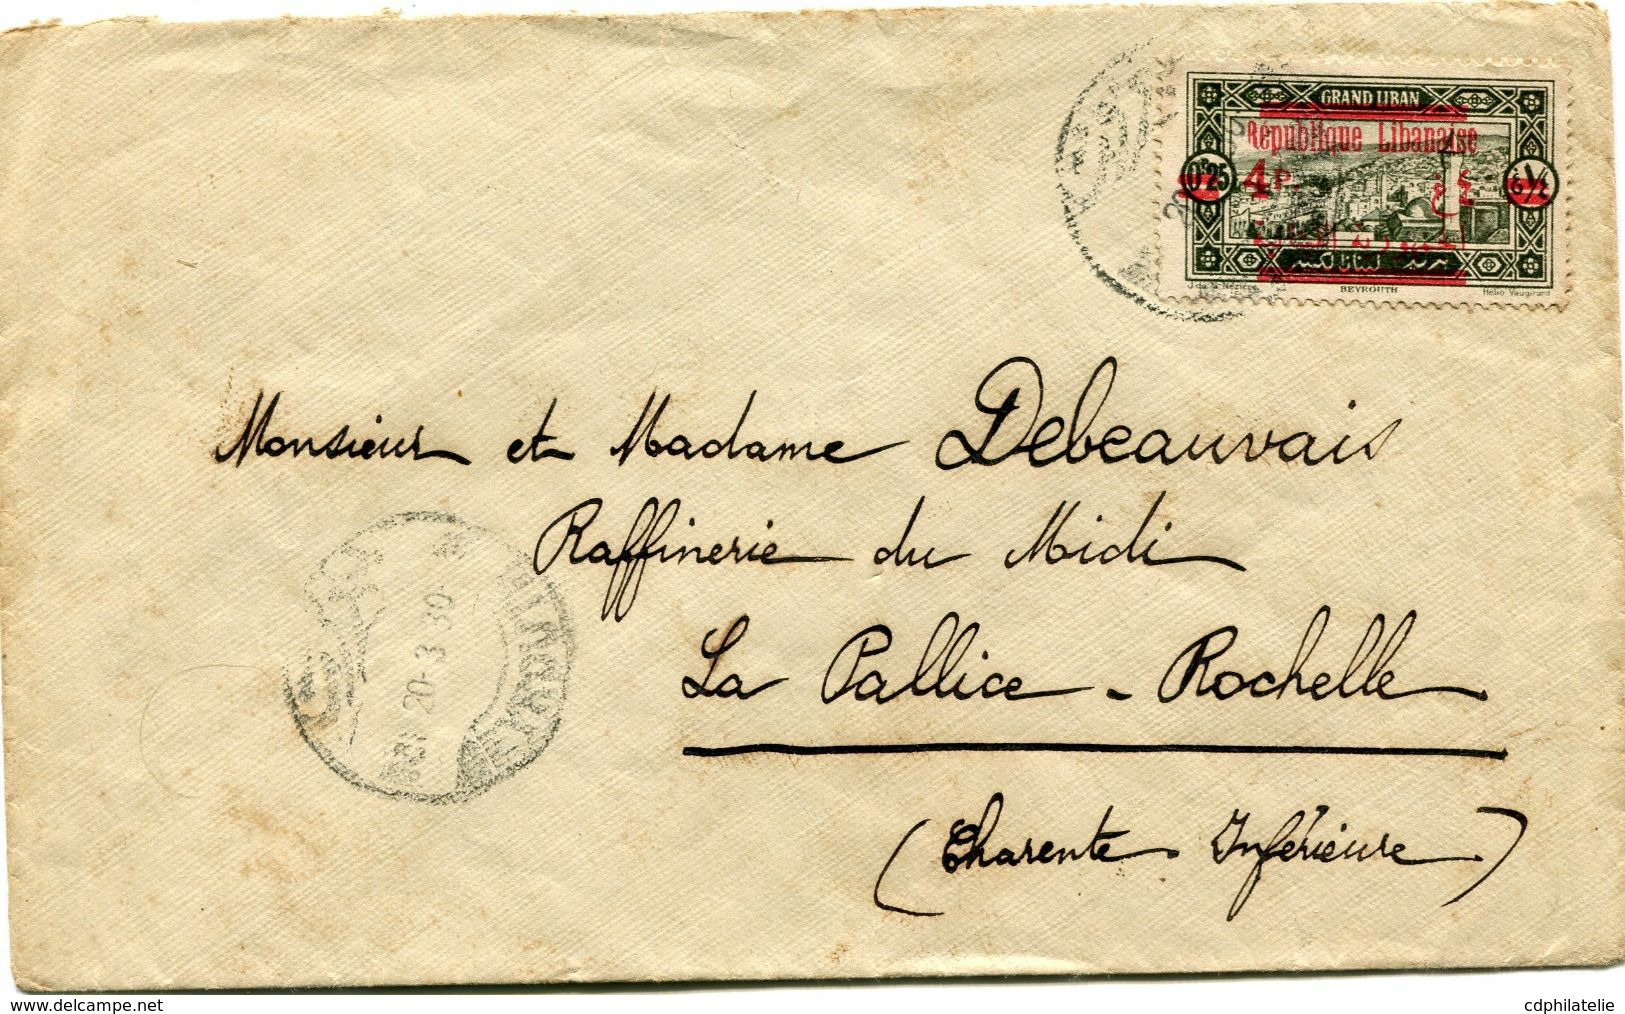 GRAND LIBAN
République Libanaise
0P25
4 P.
BEYROUTH
Hélio Vaugirard
Monsieur et Madame Debeauvais
Raffinerie du Midi
La Pallice - Rochelle
(Charente Inférieure)
20-3 30
www.delcampe.net
cdphilatelie